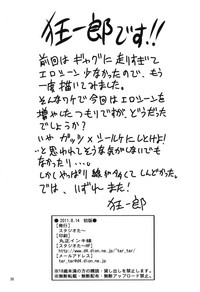 狂一郎です!!
前回はギャグに走りすぎて
エロシーン少なかったので、もう
一度描いてみました。
そんなワケで今回はエロシーンを
増やしたつもりですが、どうだった
でしょうか?
いや ガッツ×シールケにしとけよ!
と思われてそうな気がしないでも
なかったり…。
しかしやっぱり線が多くてしんどかった。
では、いずれまた!
狂一郎
●2011.8.14 初版●
【発行】
スタジオたー
【印刷】
丸正インキ様
【スタジオたーHP】
http://www.d4.dion.ne.jp/~tar_tar/
【メールアドレス】
tar_tar@d4.dion.ne.jp
※18歳未満の方の購読・貸し出しを禁止します。
※無断転載・無断配布・無断アップロード禁止。